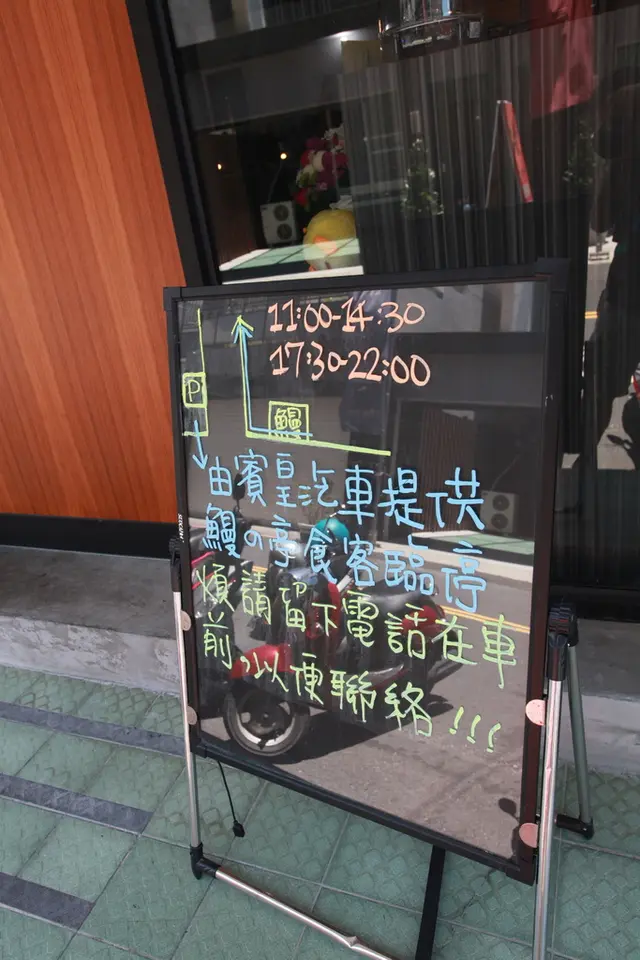 11:00-14:30
17:30-22:00
P
鰻
由賓皇汽車提供
鰻の亭食客臨停
煩請留下電話在車
前,以便聯絡!!!